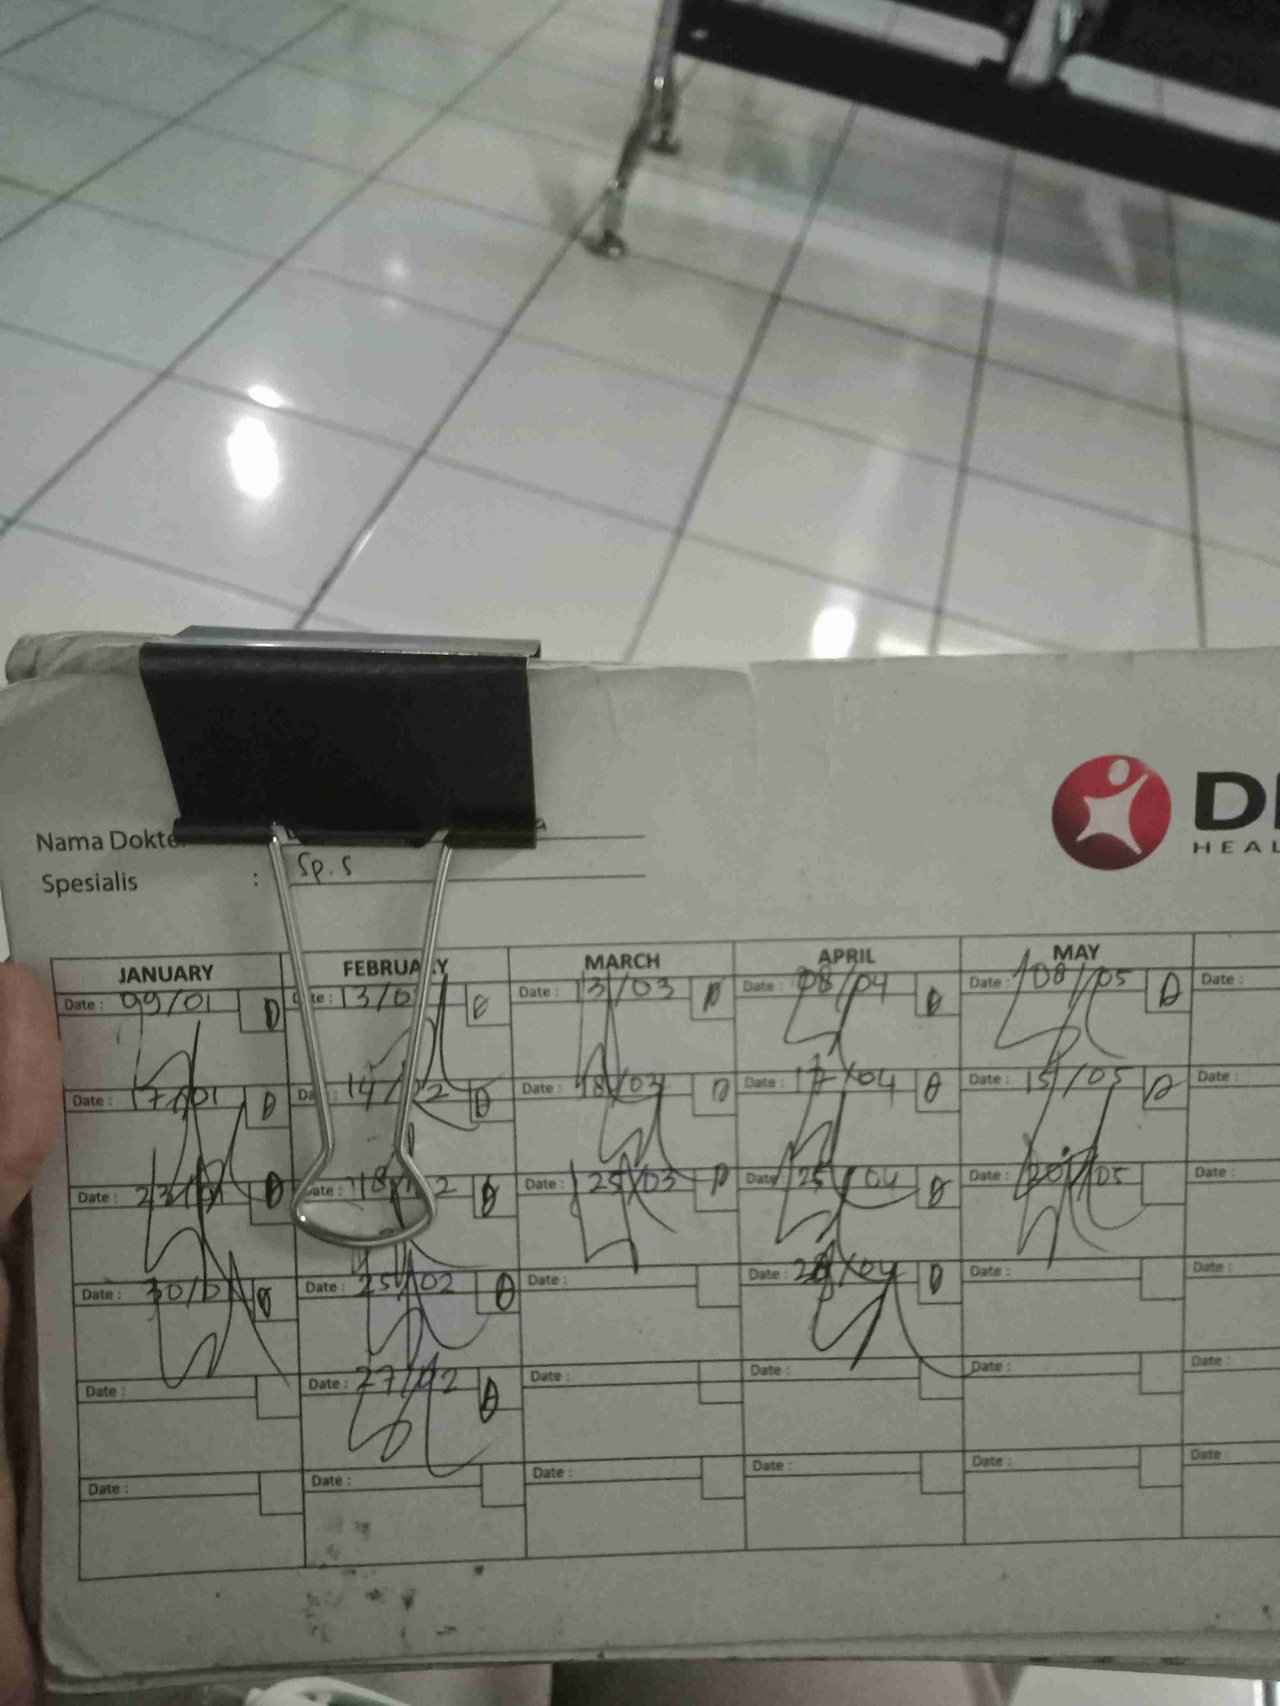 Nama Dokte
Spesialis : Sp. S
HEAL
JANUARY FEBRUARY MARCH APRIL MAY
Date : 09/01 Date : 13/0 Date : 13/03 Date : 08/04 Date : 08/05 Date :
Date : 17/01 Da 14/02 Date : 18/03 Date : 17/04 Date : 15/05 Date :
Date : 23/01 ate : 18/02 Date : 25/03 Date : 25/04 Date : 20/05 Date :
Date : 30/01 Date : 25/02 Date : Date : /04 Date : Date :
Date : Date : 27/02 Date : Date : Date : Date :
Date : Date : Date : Date : Date : Date